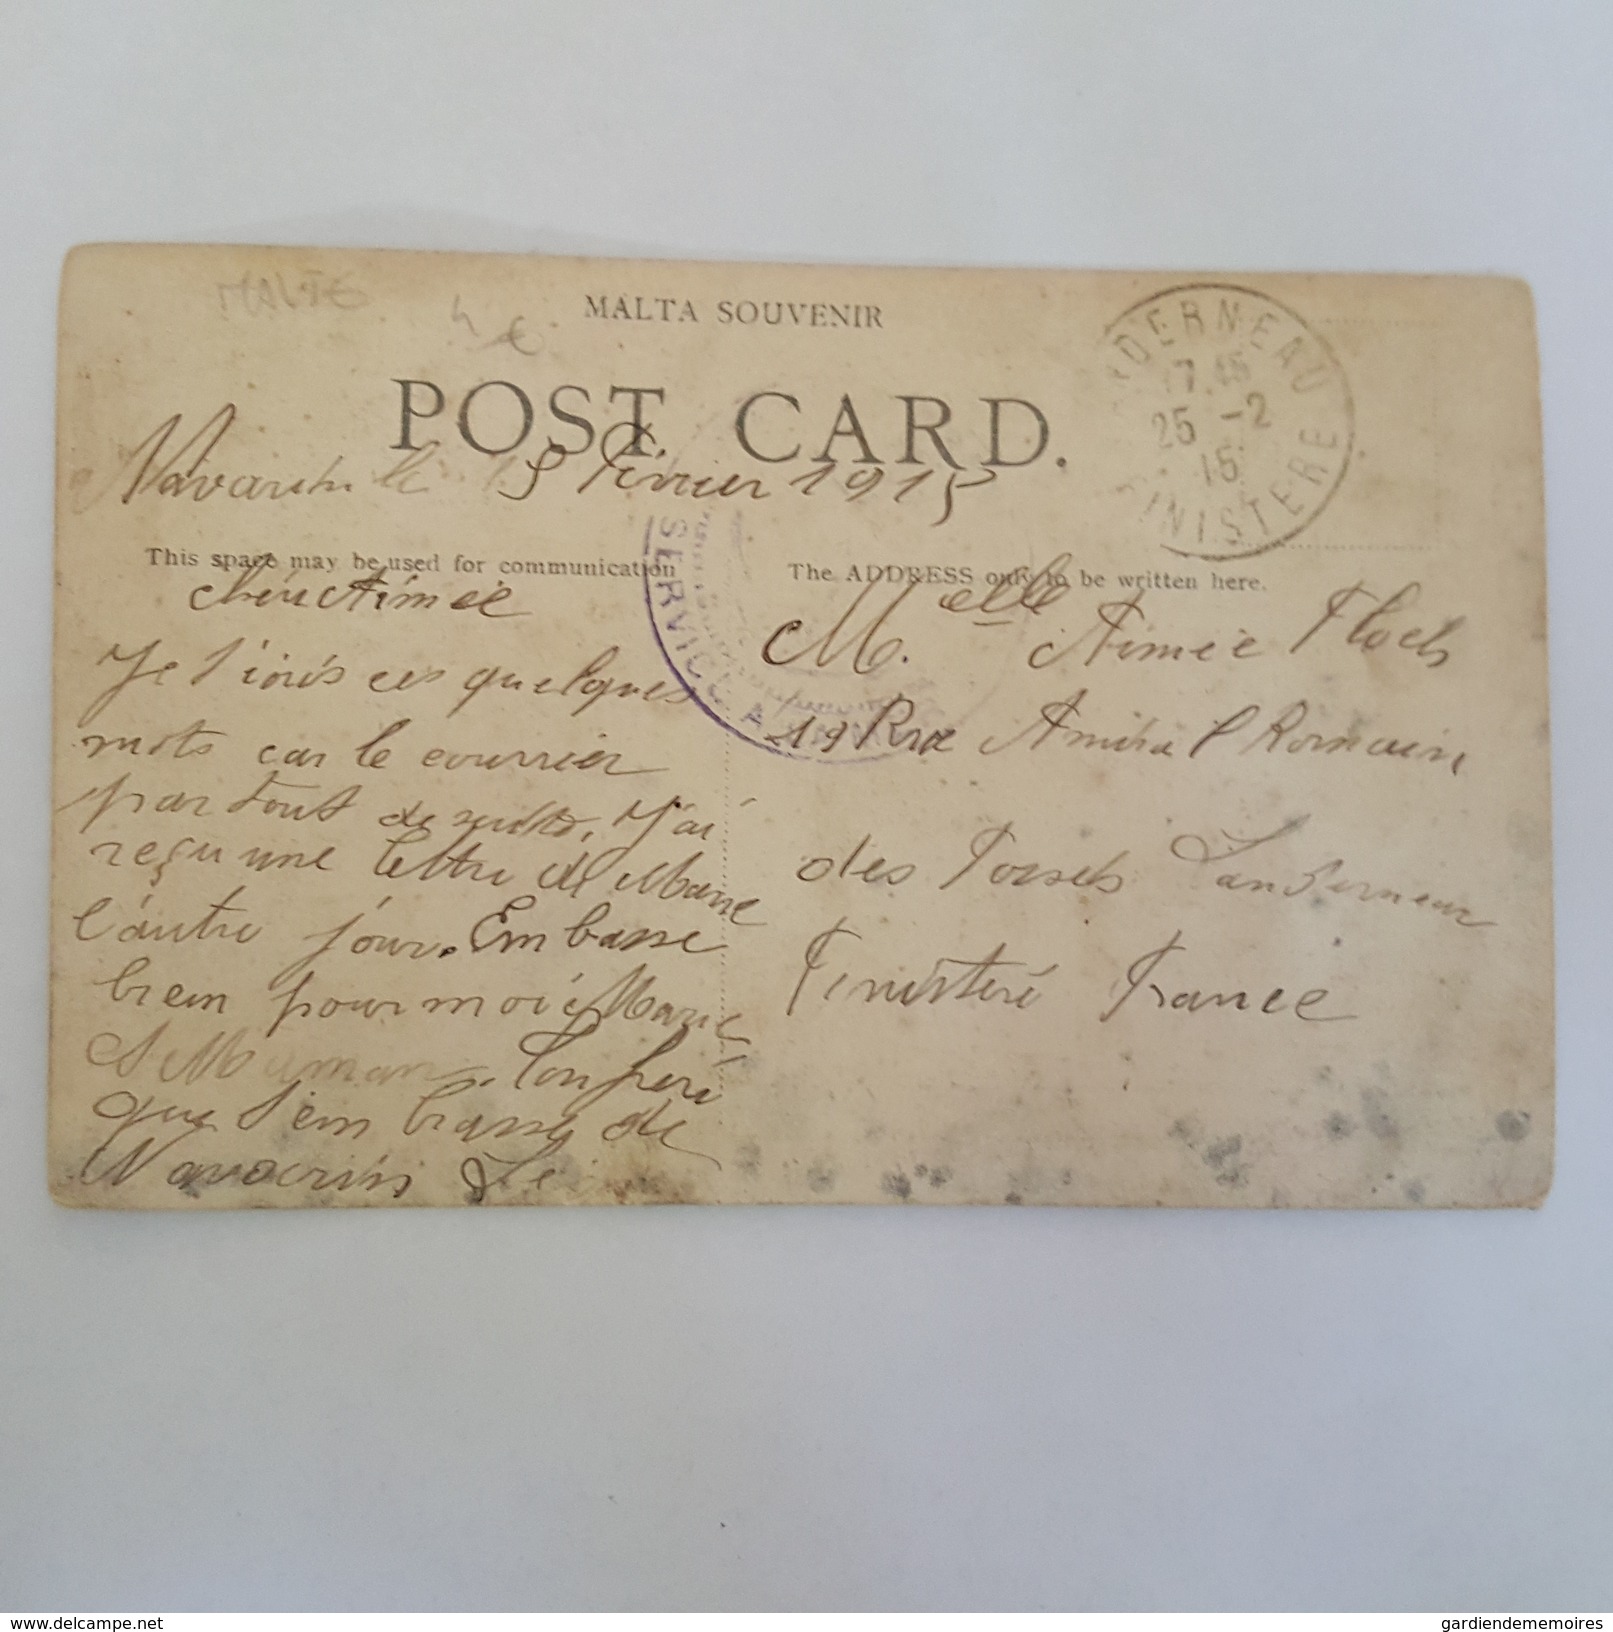 MALTE
4 €
MALTA SOUVENIR
POST CARD.
DERNEAU
17 45
25 -2
15
INISTERE
Navarin le 15 Fevrier 1915
This space may be used for communication
SERVICE A
The ADDRESS only to be written here.
chère Aimée
Je t'ecris ces quelques
mots car le courrier
part tout de suite. J'ai
reçu une lettre de Marie
l'autre jour. Embrasse
bien pour moi Marie
et Maman. Ton frere
que t'embrasse de
Navarin
Melle Aimée Floch
19 Rue Amiral Romain
des Fossés Landerneau
Finistere France
www.delcampe.net
gardiendememoires